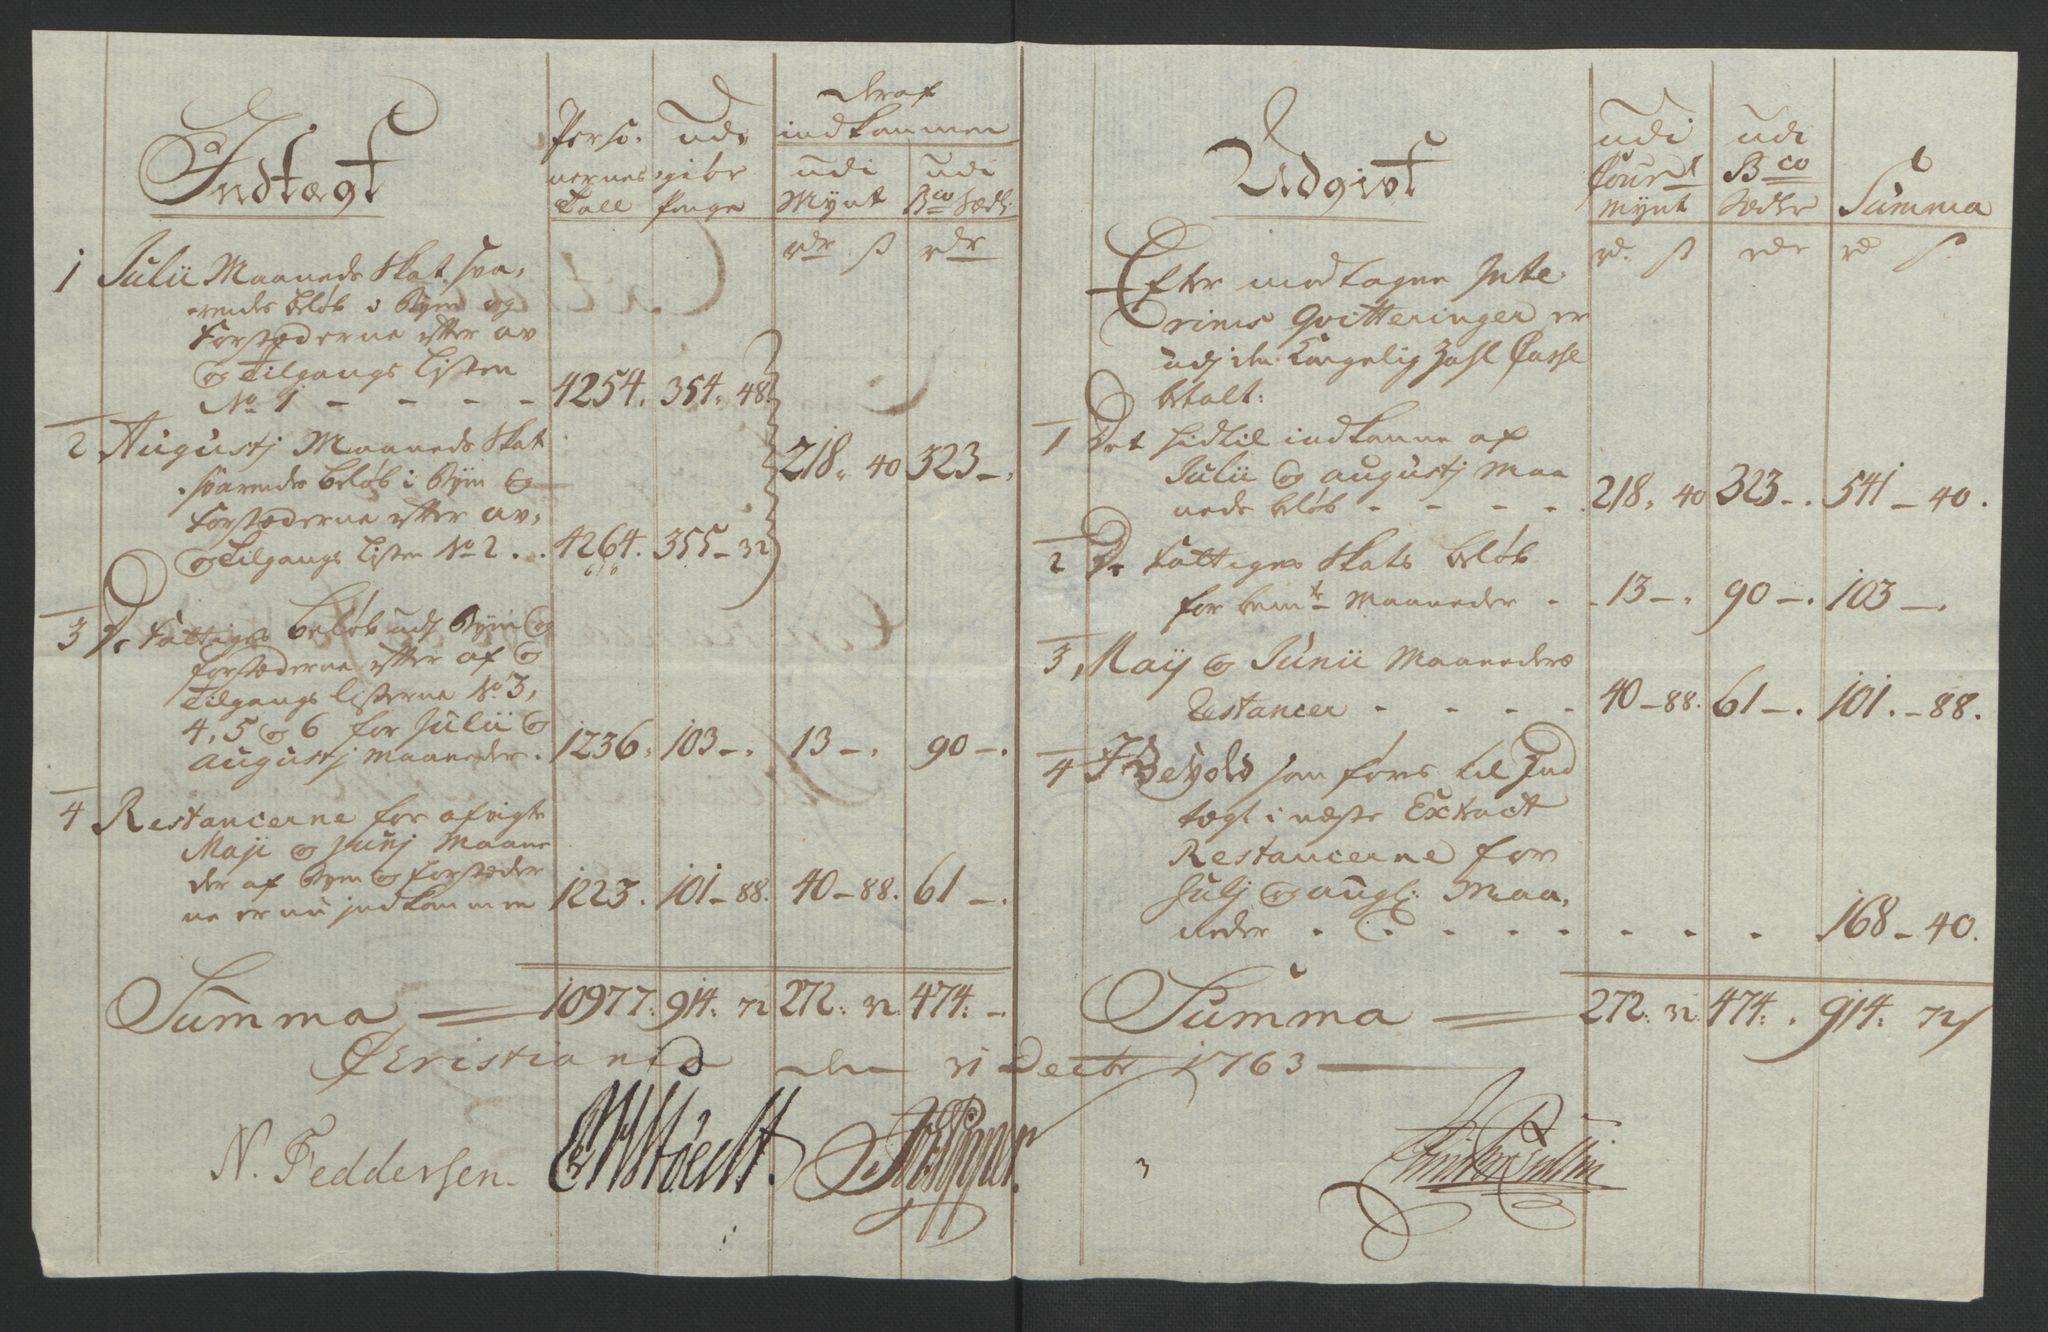 Indtægt
Perso-
nernes
Tall
udi
gibe
Penge
deraf
indkommen
udi
Mynt
udi
Bco Sedl:
rdr ß rdr
1 Julii Maaneds Skat sva-
rende beløb i Byen og
Forstæderne efter av
og Tilgangs Listen
No 1 - - - - 4254. 354. 48.
2 Augustj Maaneds Skat
svarende beløb i Byen og
Forstæderne efter av-
og Tilgangs Listen No 2 . . 4264. 355 - 32
218. 40 323 - .
3 De Fattiges beløb udj Byen og
forstæderne efter af og
Tilgangs Listerne No 3,
4, 5 og 6 for Julii og
Augustj Maaneder. 1236. 103 - . 13 - . 90 - .
4 Restancerne for afvigte
Maji og Junj Maane
der af Byen og forstæder
ne er nu indkommen 1223. 101 - 88. 40 - 88. 61 - .
Summa 10977. 914. 72 272. 32. 474. -
Udgivt
udi
Cour t
mynt
udi
Bco
Sedler
Summa
rd. ß rdr rd ß
Efter modtagne Inte-
rims Qvitteringer er
udj den Kongelig Zahl Casse
betalt:
1 Det hidtil indkomne af
Julii og Augustj Maa
neds beløb - - - - 218. 40 323 - . 541 - 40.
2 De Fattiges Skats beløb
for bemte Maaneder - - 13 - . 90 - . 103 - .
3 Maij og Junii Maaneders
Restancer - - - - 40 - 88. 61 - . 101. - 88.
4 I Behold som føres til Ind
tægt i næste Extract
Restancerne for
Julj og Aug: Maa-
neder - - - - - - - - 168 - 40.
Summa 272. 32. 474. . 914. 72
Christiania den 31 Decbr 1763
N. Feddersen.